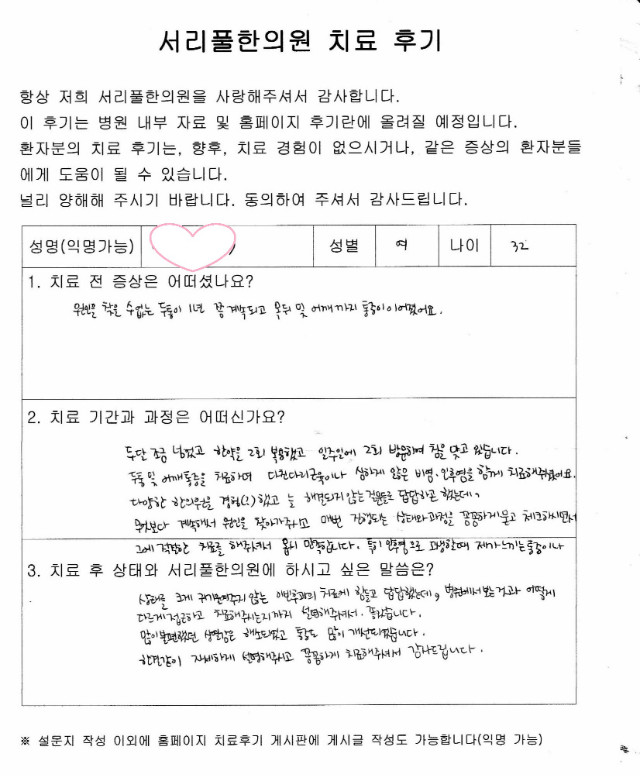 서리풀한의원 치료 후기
항상 저희 서리풀한의원을 사랑해주셔서 감사합니다.
이 후기는 병원 내부 자료 및 홈페이지 후기란에 올려질 예정입니다.
환자분의 치료 후기는, 향후, 치료 경험이 없으시거나, 같은 증상의 환자분들
에게 도움이 될 수 있습니다.
널리 양해해 주시기 바랍니다. 동의하여 주셔서 감사드립니다.
성명(익명가능) 성별 여 나이 32
1. 치료 전 증상은 어떠셨나요?
원인을 찾을 수 없는 두통이 1년 계속되고 목뒤 및 어깨까지 통증이 이어졌어요.
2. 치료 기간과 과정은 어떠신가요?
두달 조금 넘었고 한약을 2회 복용했고 일주일에 2회 방문하여 침을 맞고 있습니다.
두통 및 어깨통증을 치료하며 심하지 않은 비염, 인후염을 함께 치료해주셨어요.
다양한 한의원을 경험(?)했고 늘 해결되지 않는 답답하고 했는데,
무엇보다 계속해서 원인을 찾아가주시고 매번 진행되는 상태와 과정을 꼼꼼하게 묻고 체크하시면서
그에 적합한 치료를 해주셔서 몹시 만족합니다. 특히 인후염으로 고생할때 제가 느끼는 통증이나
3. 치료 후 상태와 서리풀한의원에 하시고 싶은 말씀은?
상태를 크게 않는 이비인후과의 치료에 힘들고 답답했는데, 병원에서 보는거와 어떻게
다르게 접근하고 치료해주시는지까지 설명해주셔서 좋았습니다.
많이 불편했던 해소되었고 통증도 많이 개선되었습니다.
한결같이 자세하게 설명해주시고 꼼꼼하게 치료해주셔서 감사드립니다.
※ 설문지 작성 이외에 홈페이지 치료후기 게시판에 게시글 작성도 가능합니다(익명 가능)